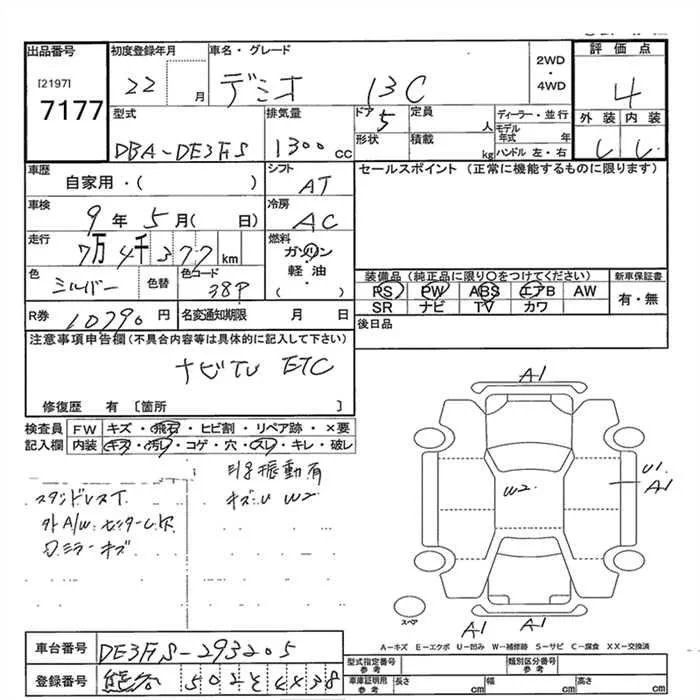 出品番号
[2197]
7177
初度登録年月
22 月
車名・グレード
デミオ 13C
2WD
・
4WD
評価点
4
外装 内装
型式
DBA-DE3FS
排気量
1300 cc
ドア
5
形状
定員 人
積載 kg
ディーラー・並行
モデル年式 年
ハンドル 左・右
車歴
自家用・( )
シフト
AT
セールスポイント (正常に機能するものに限ります)
車検
9年 5月( 日)
冷房
AC
走行
7万4千377 km
燃料
ガソリン
軽油
( )
色
シルバー
色替
色コード
38P
装備品 (純正品に限り○をつけてください)
PS PW ABS エアB AW
SR ナビ TV カワ
新車保証書
有・無
R券 10790 円
名変通知期限 月 日
後日品
注意事項申告欄(不具合内容等は具体的に記入して下さい)
ナビTV ETC
修復歴 有 〔箇所 〕
検査員
記入欄
FW キズ・飛石・ヒビ割・リペア跡・×要
内装 キズ・汚レ・コゲ・穴・スレ・キレ・破レ
振動有
キズU W2
外A/W
ミラーキズ
A1
W2
U1
A1
A1
A1
スペア
A-キズ E-エクボ U-凹み W-補修跡 S-サビ C-腐食 XX-交換済
車台番号 DE3FS-293205
登録番号
型式指定番号
参考
類別区分番号
参考
車庫証明用
参考
長さ cm
幅 cm
高さ cm